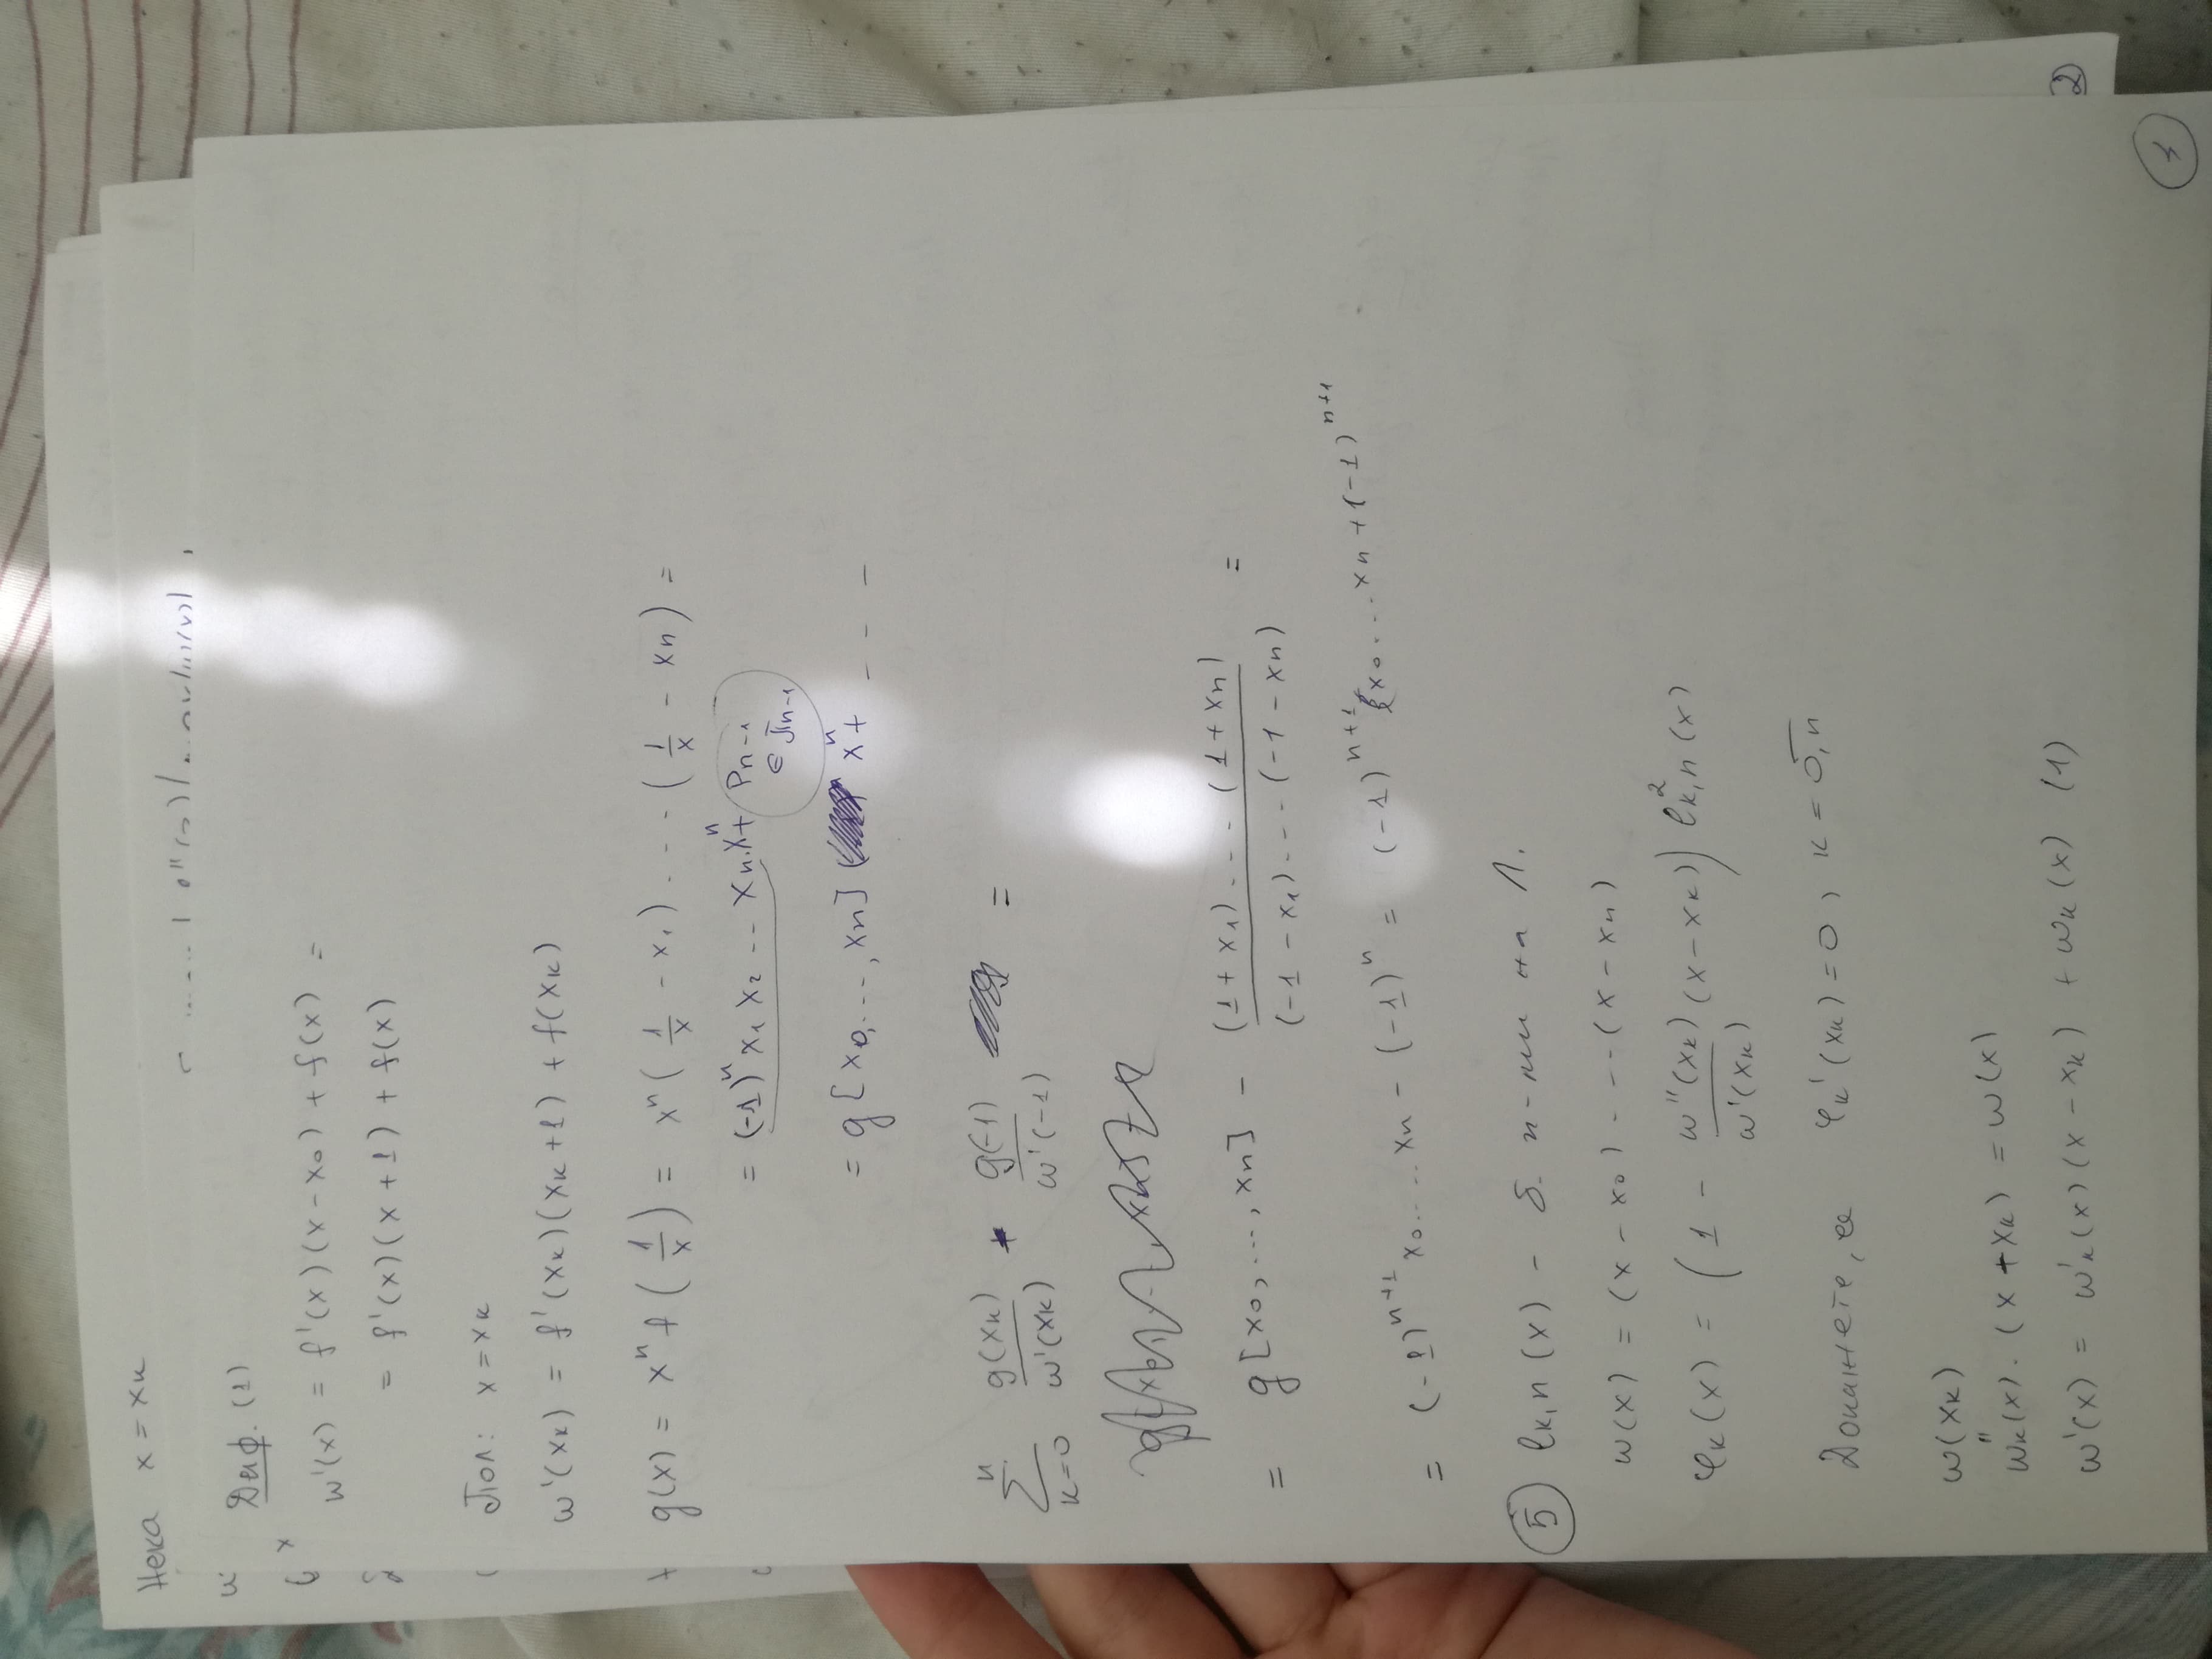 Нека x = xₖ
Диф. (1)
w'(x) = f'(x)(x-x₀) + f(x) =
= f'(x)(x+1) + f(x)
Пол: x = xₖ
w'(xₖ) = f'(xₖ)(xₖ+1) + f(xₖ)
g(x) = xⁿ f(1/x) = xⁿ(1/x - x₁) . --- (1/x - xₙ) =
= (-1)ⁿ x₁ x₂ -- xₙ.xⁿ + Pₙ₋₁
∈ πₙ₋₁
= g[x₀,...,xₙ] xⁿ + - - -
∑ₖ₌₀ⁿ g(xₖ)/w'(xₖ) - g(-1)/w'(-1) =
= g[x₀,...,xₙ] - (1+x₁)...(1+xₙ)/(-1-x₁)...(-1-xₙ) =
= (-1)ⁿ⁺¹ x₀.....xₙ - (-1)ⁿ = (-1)ⁿ⁺¹ x₀....xₙ + (-1)ⁿ⁺¹
5 ℓₖ,ₙ(x) - б. п-ми на Л.
w(x) = (x-x₀) . --- (x-xₙ)
φₖ(x) = (1 - w''(xₖ)/w'(xₖ) (x-xₖ)) ℓ²ₖ,ₙ(x)
Докажете, че φₖ'(xₖ)=0, k = 0,n
w(xₖ)
"
wₖ(x).(x-xₖ) = w(x)
w'(x) = w'ₖ(x)(x-xₖ) + wₖ(x) (1)
2